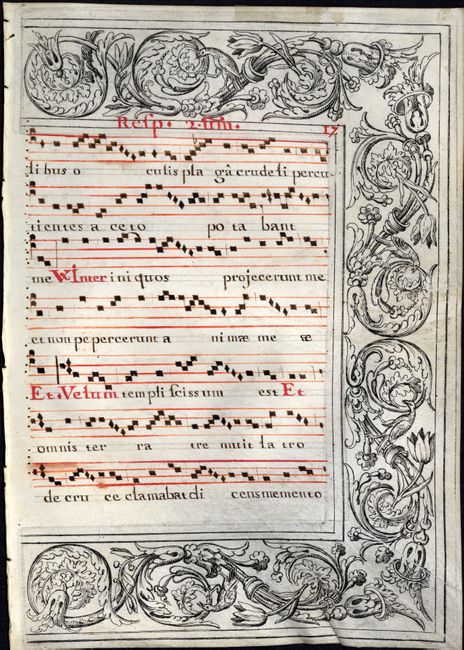 Resp. 2. 17
libus oculis plagâ crudeli percu
tientes aceto potabant
me Inter iniquos projecerunt me
et non pepercerunt animæ meæ
Et. Velum templi scissum est Et
omnis terra tremuit latro
de cruce clamabat dicens memento